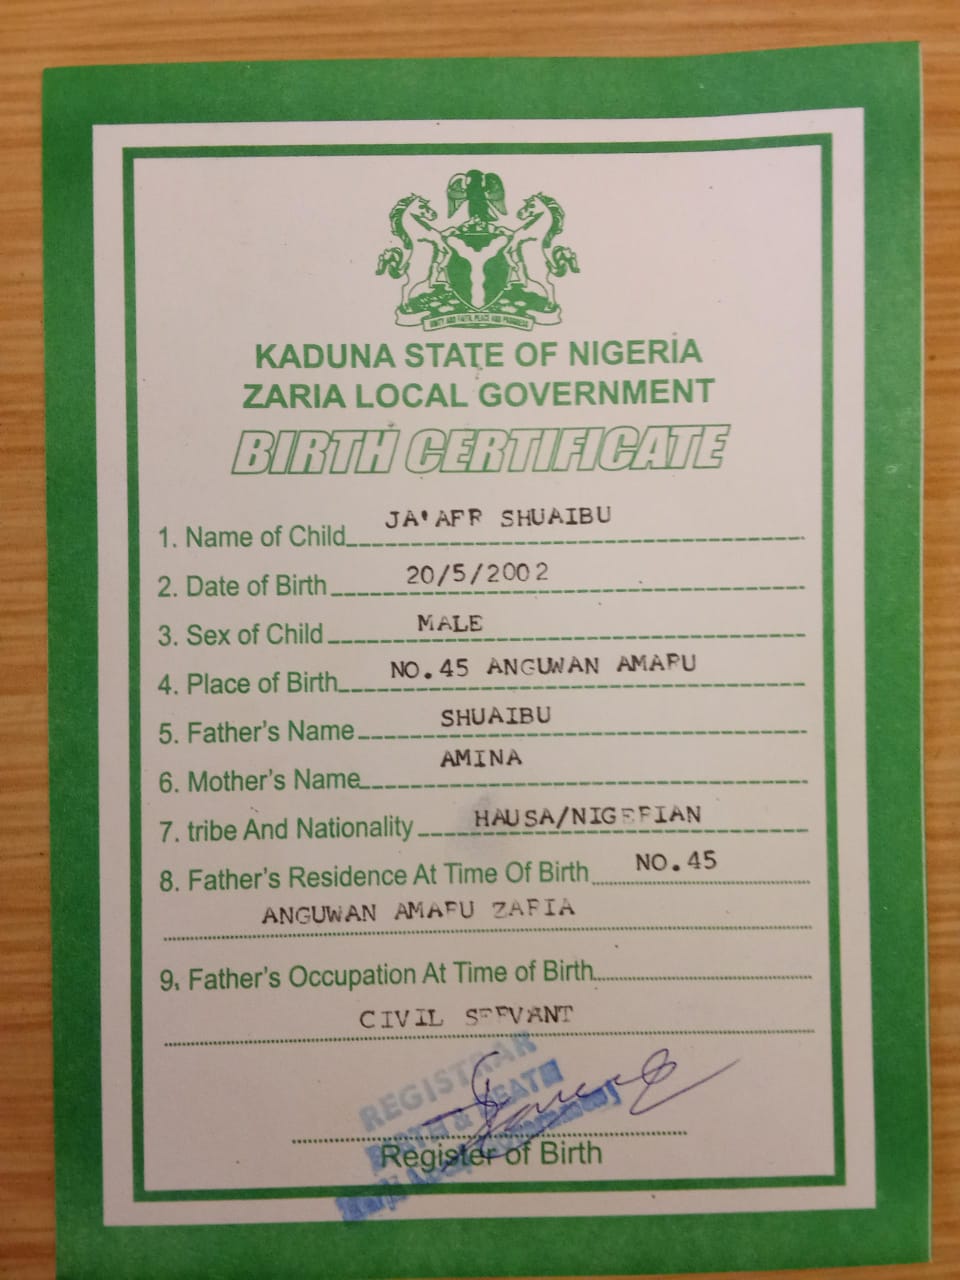 UNITY AND FAITH, PEACE AND PROGRESS
KADUNA STATE OF NIGERIA
ZARIA LOCAL GOVERNMENT
BIRTH CERTIFICATE
1. Name of Child JA'AFR SHUAIBU
2. Date of Birth 20/5/2002
3. Sex of Child MALE
4. Place of Birth NO.45 ANGUWAN AMARU
5. Father's Name SHUAIBU
6. Mother's Name AMINA
7. tribe And Nationality HAUSA/NIGERIAN
8. Father's Residence At Time Of Birth NO.45
ANGUWAN AMARU ZARIA
9. Father's Occupation At Time of Birth
CIVIL SERVANT
REGISTRAR
BIRTH & DEATH
Register of Birth